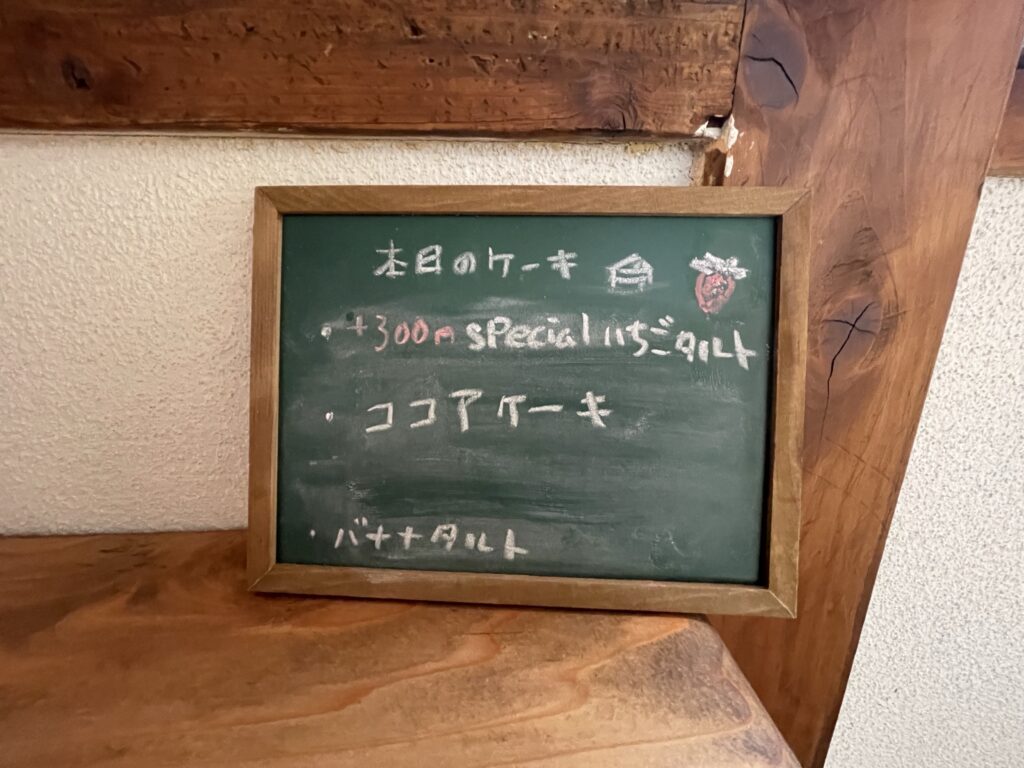 本日のケーキ
・+300円 special いちごタルト
・ココアケーキ
・バナナタルト